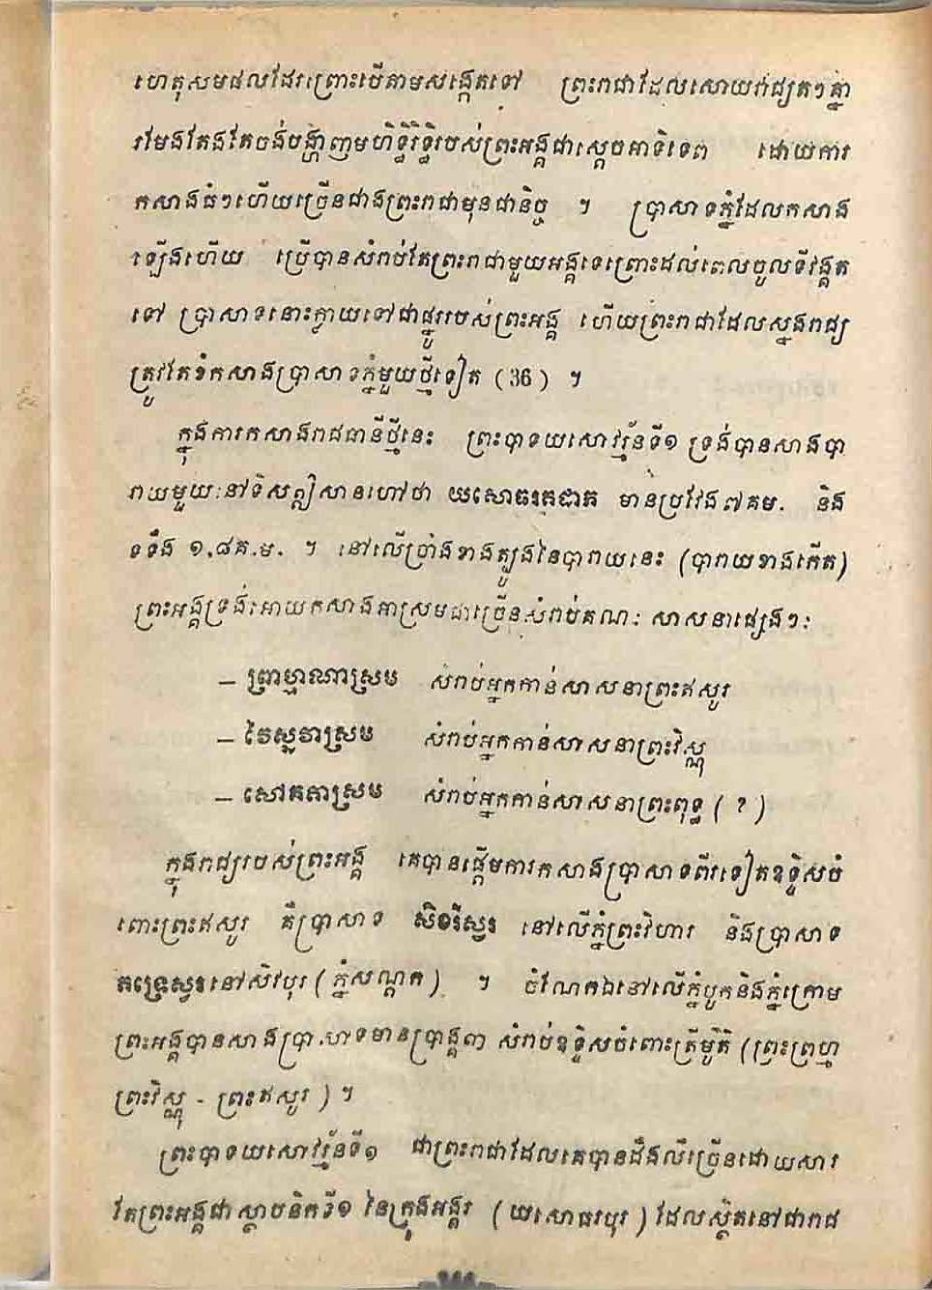 ហេតុសមផលដែរព្រោះបើតាមសង្កេតទៅ ព្រះរាជាដែលសោយរាជ្យតៗគ្នា
រមែងតែងតែចង់បង្ហាញមហិទ្ធិរិទ្ធិរបស់ព្រះអង្គជាស្តេចអាទិទេព ដោយការ
កសាងធំៗហើយច្រើនជាងព្រះរាជាមុនជានិច្ច ។ ប្រាសាទភ្នំដែលកសាង
ឡើងហើយ ប្រើបានសំរាប់តែព្រះរាជាមួយអង្គទេព្រោះដល់ពេលចូលទីវង្គត
ទៅ ប្រាសាទនោះក្លាយទៅជាផ្នូររបស់ព្រះអង្គ ហើយព្រះរាជាដែលស្នងរាជ្យ
ត្រូវតែខំកសាងប្រាសាទភ្នំមួយថ្មីទៀត (36) ។
ក្នុងការកសាងរាជធានីថ្មីនេះ ព្រះបាទយសោវរ្ម័នទី១ ទ្រង់បានសាងបា
រាយមួយនៅទិសឦសានហៅថា យសោធរតដាក មានប្រវែង៧គម. និង
ទទឹង ១,៨គ.ម. ។ នៅលើច្រាំងខាងត្បូងនៃបារាយនេះ (បារាយខាងកើត)
ព្រះអង្គទ្រង់អោយកសាងអាស្រមជាច្រើនសំរាប់គណៈ សាសនាផ្សេងៗ:
– ព្រាហ្មាណាស្រម សំរាប់អ្នកកាន់សាសនាព្រះឥសូរ
– វៃស្នវាស្រម សំរាប់អ្នកកាន់សាសនាព្រះវិស្ណុ
– សៅគតាស្រម សំរាប់អ្នកកាន់សាសនាព្រះពុទ្ធ ( ? )
ក្នុងរាជ្យរបស់ព្រះអង្គ គេបានផ្តើមការកសាងប្រាសាទពីរទៀតឧទ្ទិសចំ
ពោះព្រះឥសូរ គឺប្រាសាទ សិខរីស្វរ នៅលើភ្នំព្រះវិហារ និងប្រាសាទ
ភទ្រេស្វរនៅសិវបុរ (ភ្នំសណ្តក) ។ ចំណែកឯនៅលើភ្នំបូកនិងភ្នំក្រោម
ព្រះអង្គបានសាងប្រាសាទមានប្រាង្គ៣ សំរាប់ឧទ្ទិសចំពោះត្រីមូតិ (ព្រះព្រហ្ម
ព្រះវិស្ណុ - ព្រះឥសូរ ) ។
ព្រះបាទយសោវរ្ម័នទី១ ជាព្រះរាជាដែលគេបានដឹងលឺច្រើនដោយសារ
តែព្រះអង្គជាស្ថាបនិកទី១ នៃក្រុងអង្គរ (យសោធរបុរ ) ដែលស្ថិតនៅជារាជ